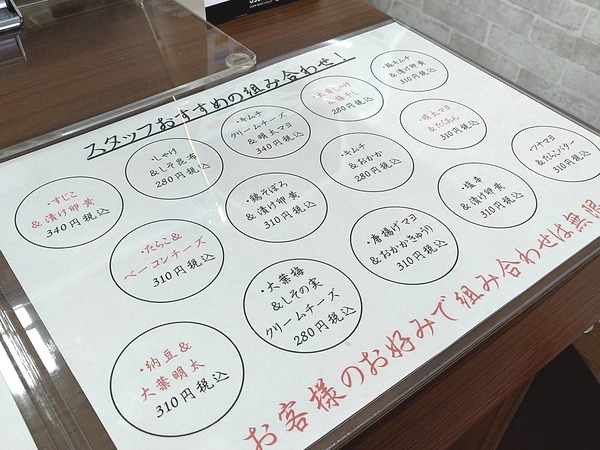 スタッフおすすめの組み合わせ！
・すじこ
&漬け卵黄
340円税込
・しゃけ
&しそ昆布
280円税込
・キムチ
クリームチーズ
&明太マヨ
340円税込
&梅干し
280円税込
・塩キムチ
&漬け卵黄
310円税込
・たらこ&
ベーコンチーズ
310円税込
・鶏そぼろ
&漬け卵黄
310円税込
・キムチ
&おかか
280円税込
・明太マヨ
&たくあん
310円税込
・納豆&
大葉明太
310円税込
・大葉梅
&しその実
クリームチーズ
280円税込
・唐揚げマヨ
&おかかきゅうり
310円税込
・塩辛
&漬け卵黄
310円税込
・ツナマヨ
&たらこバター
310円税込
お客様のお好みで組み合わせは無限